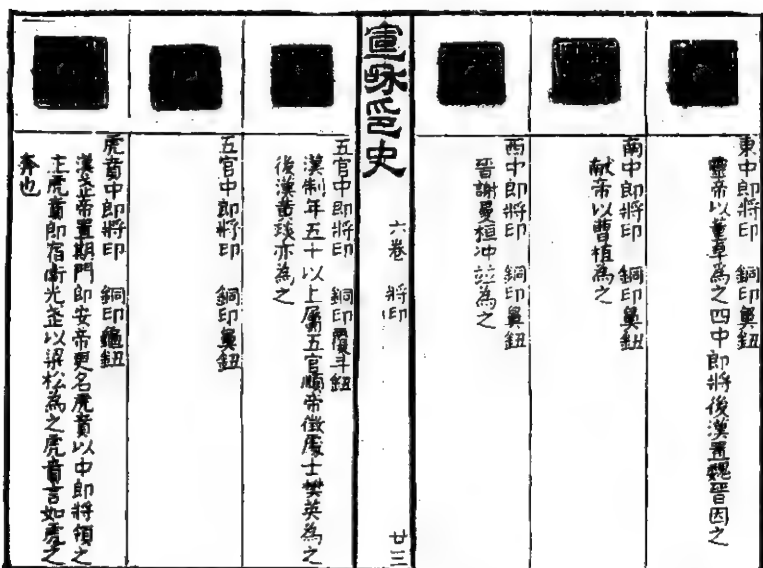 東中郎將印　銅印鼻鈕
靈帝以董卓爲之四中郎將後漢置魏晉因之
南中郎將印　銅印鼻鈕
献帝以曹植爲之
西中郎將印　銅印鼻鈕
晉謝曼桓冲竝爲之
宣和印史
六卷　將印
廿三
五官中郎將印　銅印覆斗鈕
漢制年五十以上屬五官順帝徵處士樊英為之
後漢黃琰亦為之
五官中郎將印　銅印鼻鈕
虎賁中郎將印　銅印龜鈕
漢武帝置期門郎安帝更名虎賁以中郎將領之
主虎賁郎宿衛光武以梁松為之虎賁言如虎之
奔也